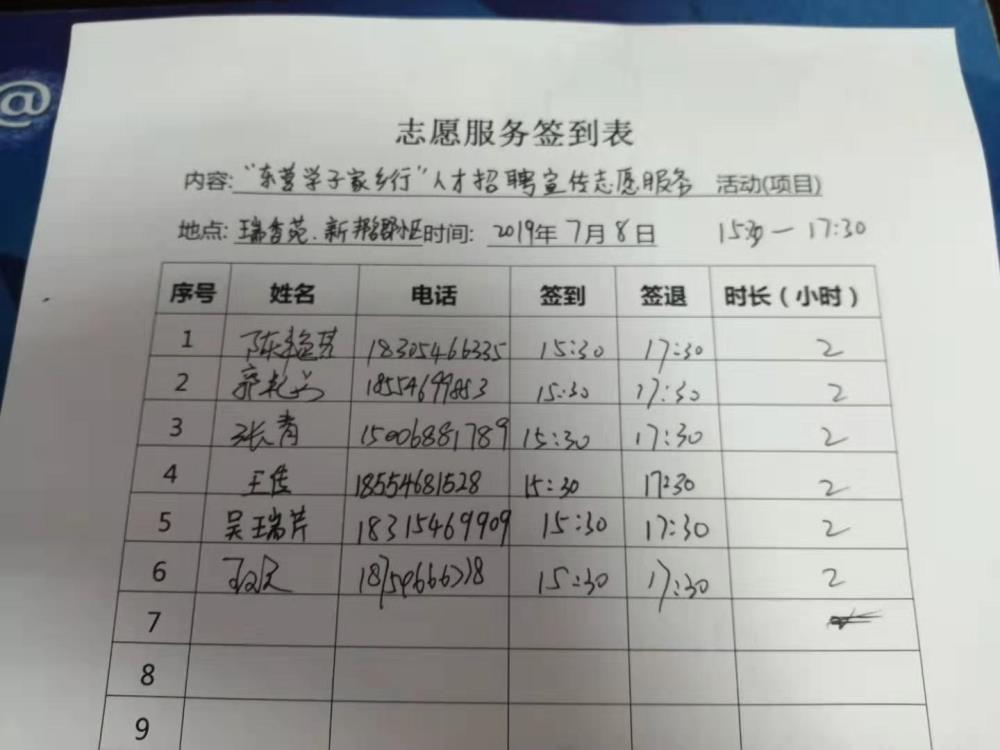 @
志愿服务签到表
内容:"东营学子家乡行"人才招聘宣传志愿服务 活动(项目)
地点: 瑞香苑、新邦小区 时间: 2019年7月8日 15:30—17:30
序号 姓名 电话 签到 签退 时长（小时）
1 陈 18305466335 15:30 17:30 2
2 15:30 17:30 2
3 张青 15006881789 15:30 17:30 2
4 王佳 18554681528 15:30 17:30 2
5 吴瑞芹 18315469909 15:30 17:30 2
6 15:30 17:30 2
7
8
9